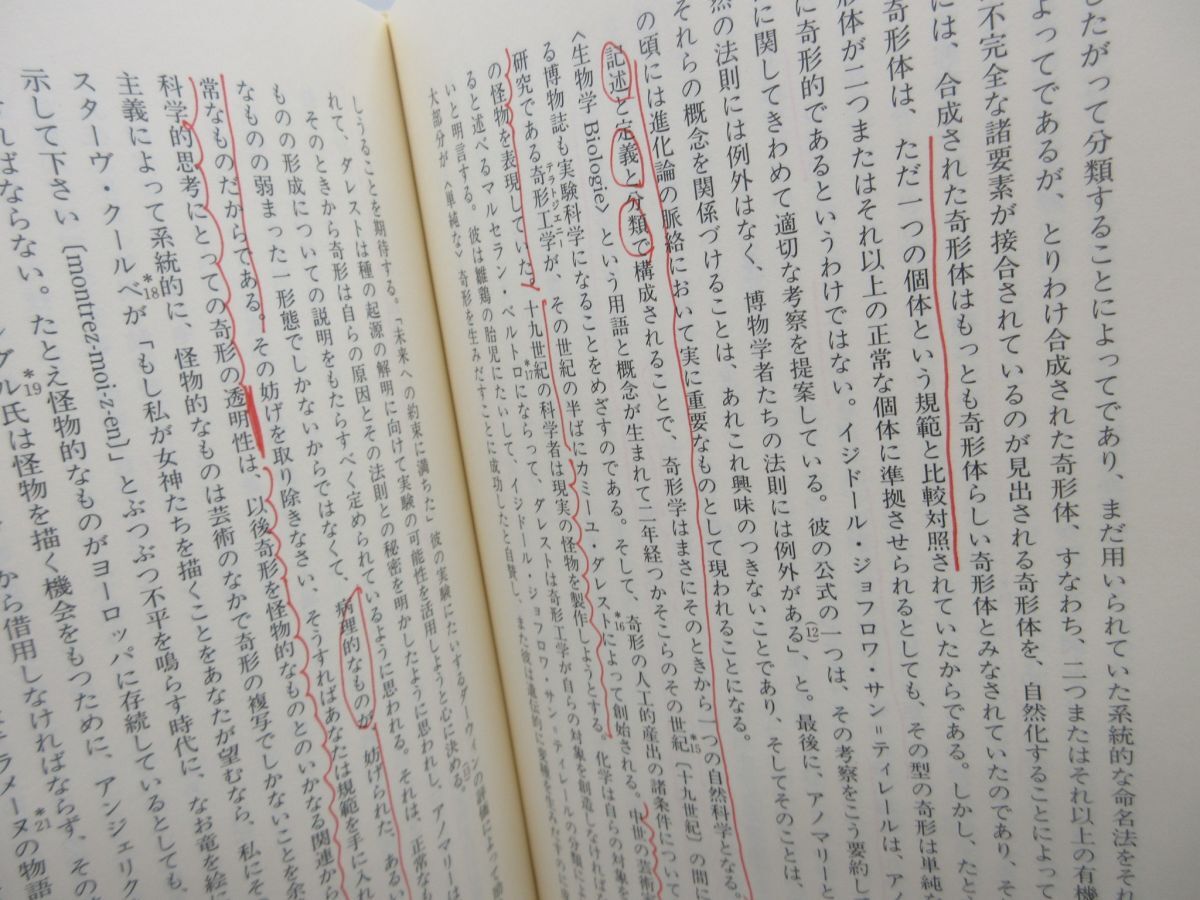 したがって分類することによってであり、まだ用いられていた系統的な命名法をそれ
よってであるが、とりわけ合成された奇形体、すなわち、二つまたはそれ以上の有機
不完全な諸要素が接合されているのが見出される奇形体を、自然化することによって
には、合成された奇形体はもっとも奇形体らしい奇形体とみなされていたのであり、そ
奇形体は、ただ一つの個体という規範と比較対照されていたからである。しかし、たと
形体が二つまたはそれ以上の正常な個体に準拠させられるとしても、その型の奇形は単純な
に奇形的であるというわけではない。イジドール・ジョフロワ・サン=ティレールは、アノ
に関してきわめて適切な考察を提案している。彼の公式の一つは、その考察をこう要約して
然の法則には例外はなく、博物学者たちの法則には例外がある」(12)、と。最後に、アノマリーと
それらの概念を関係づけることは、あれこれ興味のつきないことであり、そしてそのことは、
の頃には進化論の脈絡において実に重要なものとして現われることになる。
記述と定義と分類で構成されることで、奇形学はまさにそのときから一つの自然科学となる。
〈生物学 Biologie〉という用語と概念が生まれて二年経つかそこらのその世紀*15〔十九世紀〕の間に
る博物誌も実験科学になることをめざすのである。そして、奇形の人工的産出の諸条件について
研究である奇形工学テラトジェニーが、その世紀の半ばにカミーユ・ダレスト*16によって創始される。中世の芸術家
の怪物を表現していた。十九世紀の科学者は現実の怪物を製作しようとする。化学は自らの対象を
ると述べるマルセラン・ベルトロ*17にならって、ダレストは奇形工学が自らの対象を創造しなければ
いと明言する。彼は雛鶏の胎児にたいして、イジドール・ジョフロワ・サン=ティレールの分類によ
大部分が〈単純な〉奇形を生みだすことに成功したと自賛し、また彼は遺伝的に変種を生みだすのに
しうることを期待する。「未来への約束に満ちた」彼の実験にたいするダーウィンの評価によって
れて、ダレストは種の起源の解明に向けて実験の可能性を活用しようと心に決める。(13)
そのときから奇形は自らの原因とその法則との秘密を明かしたように思われ、アノマリーは
ものの形成についての説明をもたらすべく定められているように思われる。それは、正常なも
なものの弱まった一形態でしかないからではなくて、病理的なものが、妨げられた、あるい
常なものだからである。その妨げを取り除きなさい、そうすればあなたは規範を手に入れ
科学的思考にとっての奇形の透明性は、以後奇形を怪物的なものとのいかなる関連から
主義によって系統的に、怪物的なものは芸術のなかで奇形の複写でしかないことを余
スターヴ・クールベ*18が「もし私が女神たちを描くことをあなたが望むなら、私にそ
示して下さい〔montrez-moi-z-en〕」とぶつぶつ不平を鳴らす時代に、なお竜を絵に
ければならない。たとえ怪物的なものがヨーロッパに存続しているとしても、
グル氏*19は怪物を描く機会をもつために、アンジェリク
から借用しなければならず、その
ラメーヌの物語*21